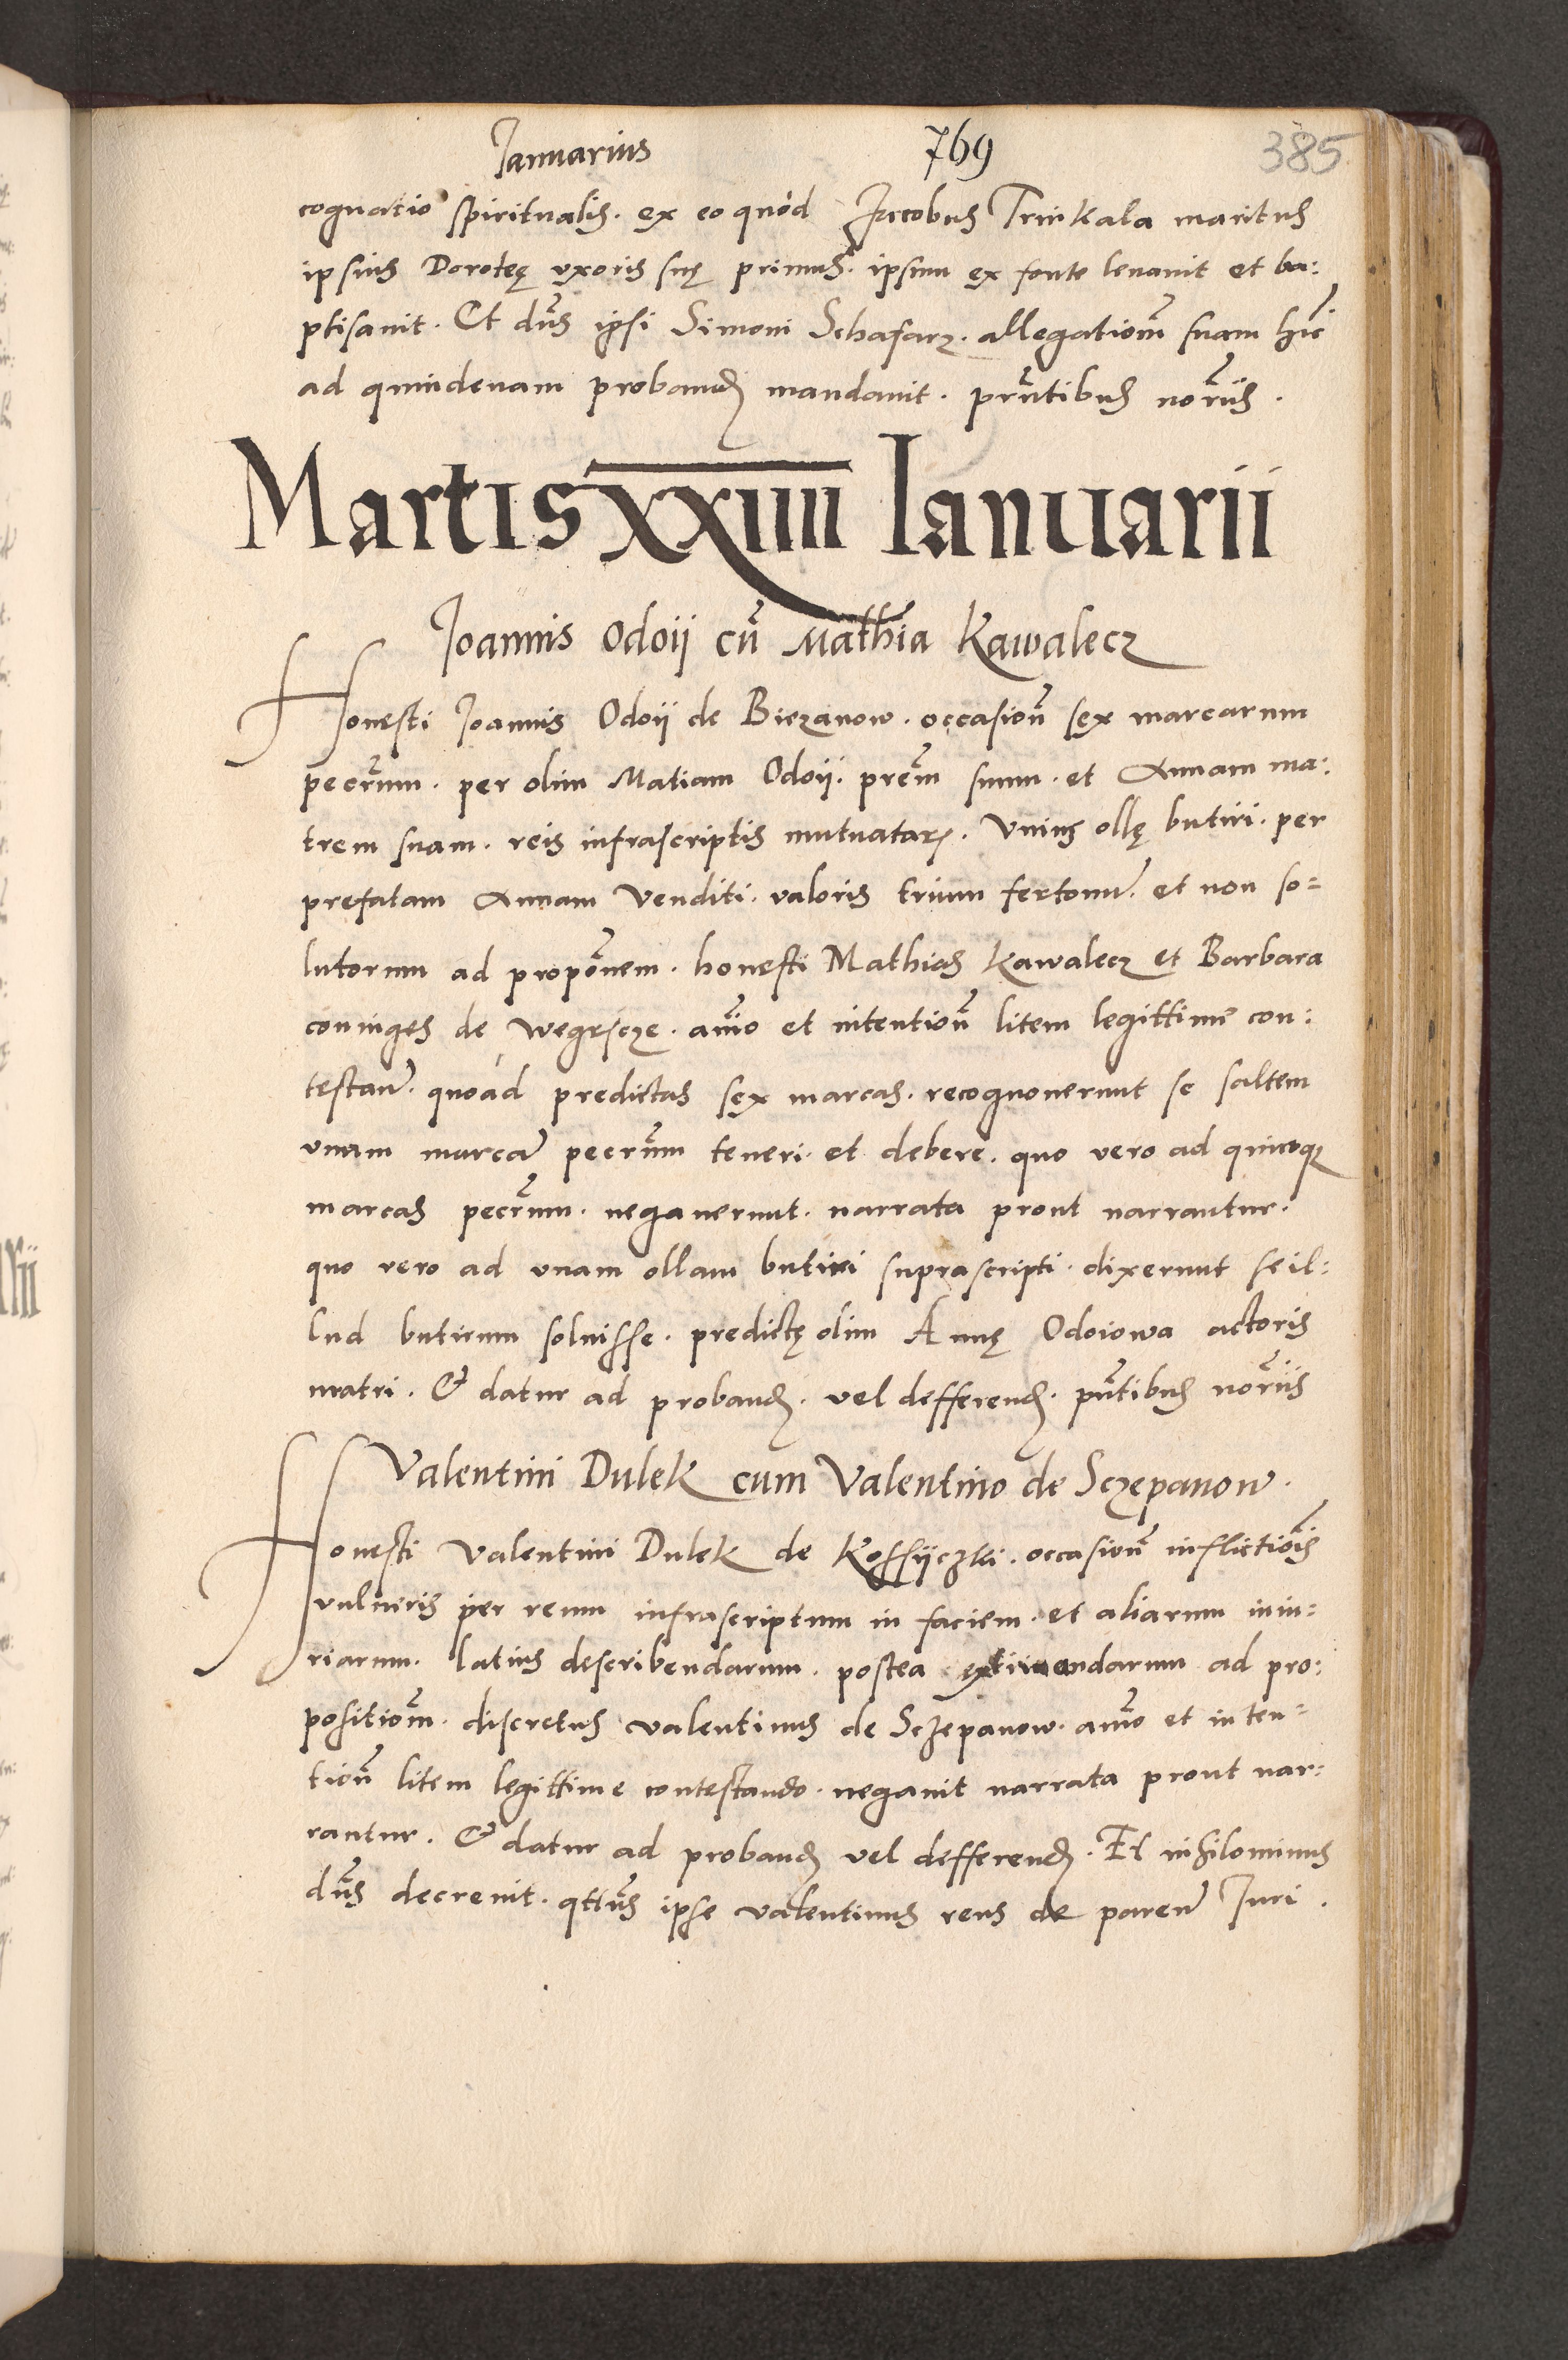 Januarius 769 385
cognatio spiritualis. ex eo quòd Jacobus Trinkala maritus
ipsius Doroteę uxoris suę primus. ipsum ex fonte levavit et ba:
ptisavit. Et dn̄s ipsi Simoni Schafarz. allegationē suam hic
ad quindenam proband mandavit. prn̄tibus nor̄iis.
Martis XXIIII Ianuarii
Joannis Odoij cū Mathia Kawalecz
Honesti Joannis Odoij de Biezanow. occasion̄ sex marcarum
pecr̄um. per olim Matiam Odoij. prēm suum. et Annam ma:
trem suam. reis infrascriptis mutuatar. Unius ollę butiri. per
prefatam Annam Venditi. valoris trium fertonū. et non so=
lutorum ad propōnem. honesti Mathias Kawalecz et Barbara
coniuges de Wegrzcze. anīo et intention̄ litem legittime con:
testanr̄. quoad predictas sex marcas. recognoverunt se saltem
unam marcā pecr̄um teneri. et debere. quo vero ad quinque
marcas pecr̄um. negaverunt. narrata prout narrantur.
quo vero ad unam ollam butiri suprascripti. dixerunt se il:
lud butirum solvisse. predictę olim Annę Odoiowa actoris
matri. & datur ad proband. vel defferend. pn̄tibus nor̄iis
Valentini Dulek cum Valentino de Sczepanow.
Honesti Valentini Dulek de Kossyczki. occasion̄ inflictiōis
vulneris per reum infrascriptum in faciem. et aliarum iniu:
riarum. latius describendarum. postea extimandarum ad pro:
positionē. discretus Valentinus de Sczepanow. anīo et inten=
tion̄ litem legittime contestando. negavit narrata prout nar:
rantur. & datur ad proband vel defferend. Et nihilominus
dn̄s decrevit. qtt̄us ipse Valentinus reus de paren̄ Juri.